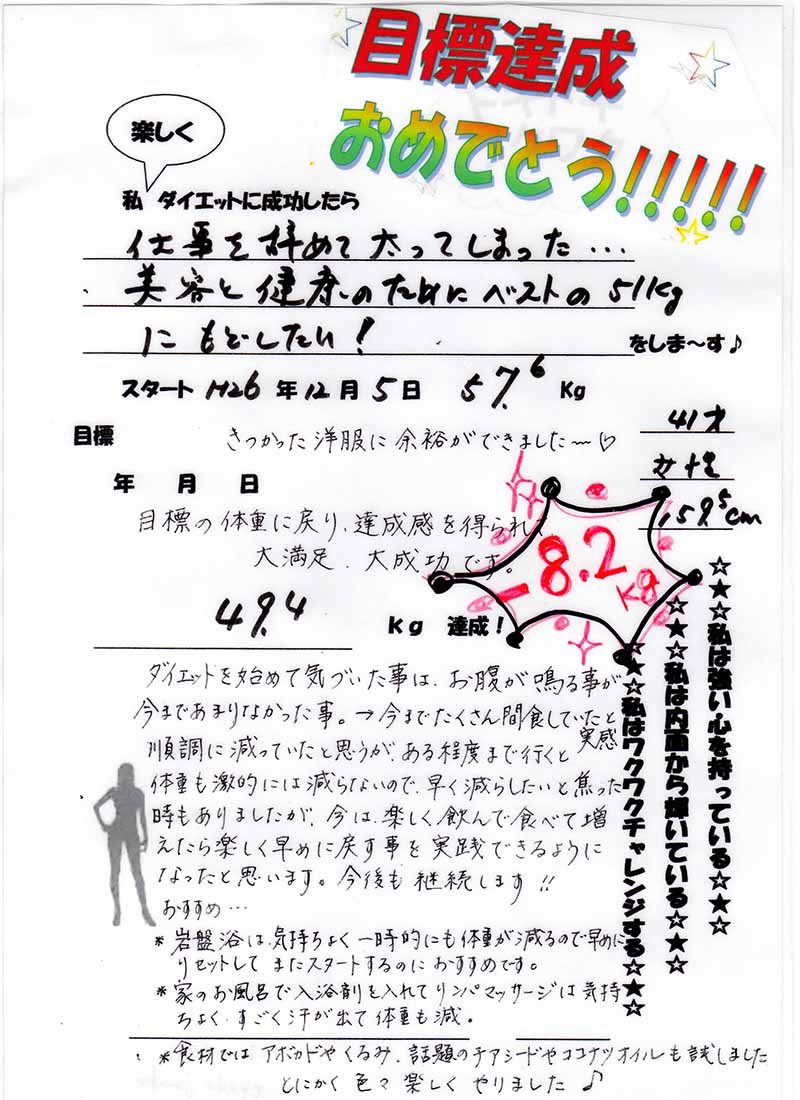 目標達成
おめでとう!!!!!
楽しく
私 ダイエットに成功したら
仕事を辞めて太ってしまった…
美容と健康のためにベストの51kg
にもどしたい!
をしま〜す♪
スタート H26年12月5日 57.6 Kg
目標
きつかった洋服に余裕ができました〜♡
41才
女性
159.5cm
年 月 日
目標の体重に戻り、達成感を得られ、
大満足、大成功です。
-8.2Kg
49.4
Kg 達成!
☆★☆私は強い心を持っている☆★☆
☆★☆私は内面から輝いている☆★☆
☆★☆私はワクワクチャレンジする☆★☆
ダイエットを始めて気づいた事は、お腹が鳴る事が
今まであまりなかった事。→今までたくさん間食していたと
実感
順調に減っていたと思うが、ある程度まで行くと
体重も激的には減らないので、早く減らしたいと焦った
時もありましたが、今は、楽しく飲んで食べて増
えたら楽しく早めに戻す事を実践できるように
なったと思います。今後も継続します!!
おすすめ…
*岩盤浴は、気持ちよく一時的にも体重が減るので早めに
リセットしてまたスタートするのにおすすめです。
*家のお風呂で入浴剤を入れてリンパマッサージは気持
ちよく、すごく汗が出て体重も減。
*食材ではアボカドやくるみ、話題のチアシードやココナツオイルも試しました
とにかく色々楽しくやりました♪